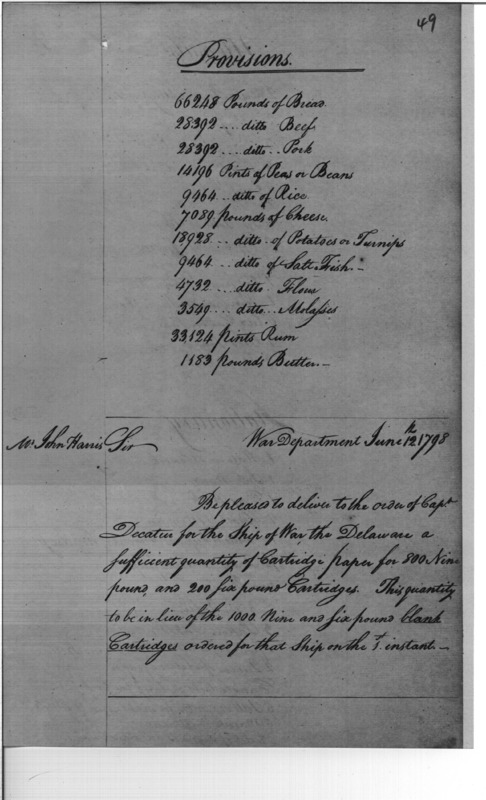 49
Provisions.
66248 Pounds of Bread.
28392 .... ditto Beef
28392 .... ditto .. Pork
14196 Pints of Peas or Beans
9464 .. ditto of Rice.
7089 pounds of Cheese.
18928 .. ditto of Potatoes or Turnips
9464 .. ditto of Salt Fish.-
4732 ... ditto Flour
3549 .. ditto .. Molasses
33124 pints Rum
1183 pounds Butter.-
Mr John Harris Sir War Department June 12th 1798
Be pleased to deliver to the order of Capt
Decatur for the Ship of War, the Delaware a
sufficient quantity of Cartridge paper for 800 Nine
pound, and 200 six pound Cartridges. This quantity
to be in lieu of the 1000 Nine and six pound blank
Cartridges ordered for that Ship on the instant.-